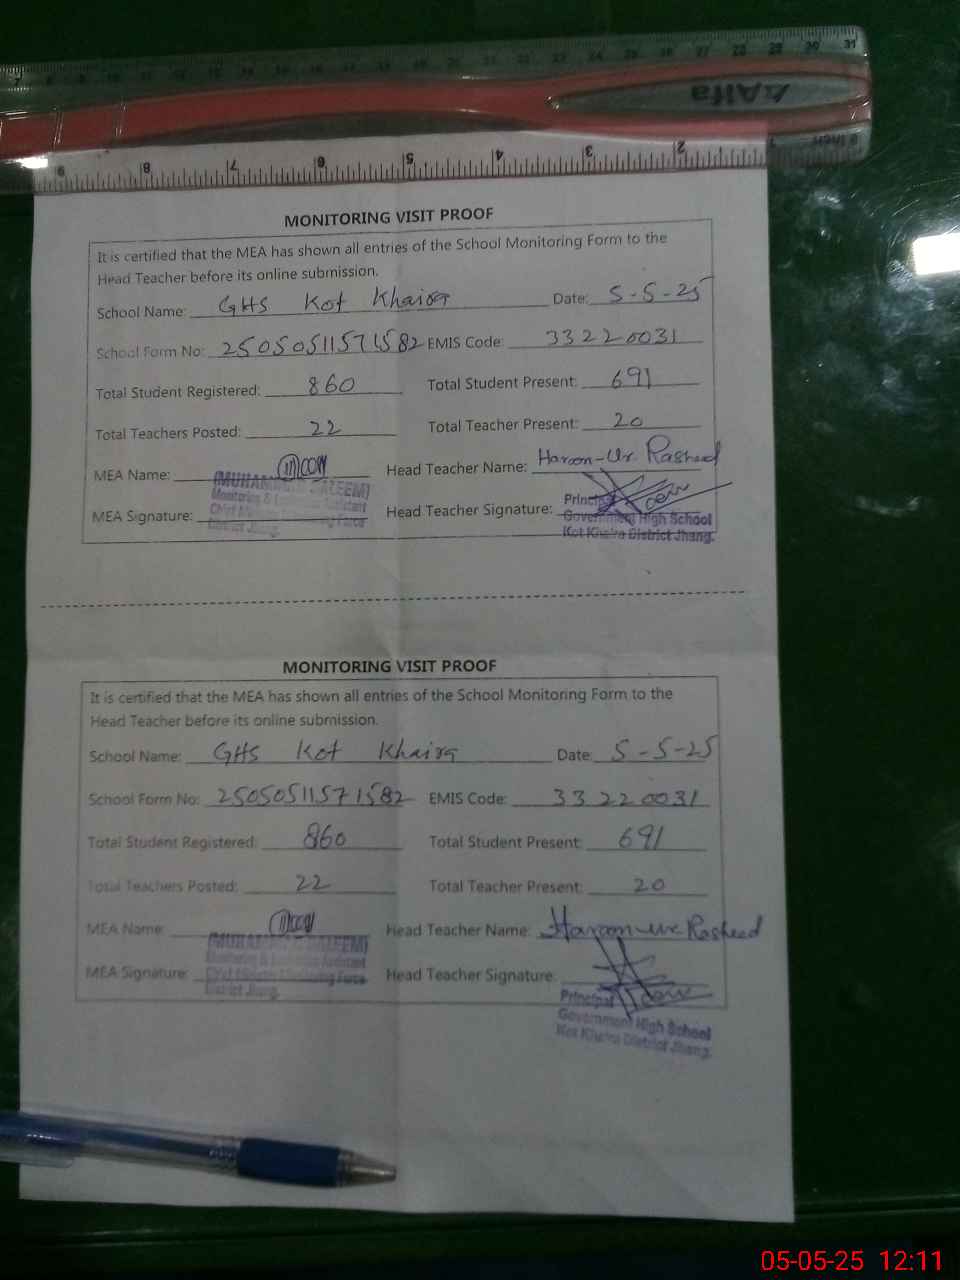 7 8 9 10 11 12 13 14 15 16 17 18 19 20 21 22 23 24 25 26 27 28 29 30 31
Alfa
9 8 7 6 5 4 3 2 1 0 inch
MONITORING VISIT PROOF
It is certified that the MEA has shown all entries of the School Monitoring Form to the
Head Teacher before its online submission.
School Name: GHS Kot Khaira Date: 5-5-25
School Form No: 25050511571582 EMIS Code: 33220031
Total Student Registered: 860 Total Student Present: 691
Total Teachers Posted: 22 Total Teacher Present: 20
MEA Name: Head Teacher Name: Haroon-Ur-Rasheed
(MUHAMMAD SALEEM)
Monitoring & Evaluation Assistant
MEA Signature: Head Teacher Signature:
Chief Minister Monitoring Force
District Jhang.
Principal
Government High School
Kot Khaira District Jhang.
MONITORING VISIT PROOF
It is certified that the MEA has shown all entries of the School Monitoring Form to the
Head Teacher before its online submission.
School Name: GHS Kot Khaira Date: 5-5-25
School Form No: 25050511571582 EMIS Code: 33220031
Total Student Registered: 860 Total Student Present: 691
Total Teachers Posted: 22 Total Teacher Present: 20
MEA Name: Head Teacher Name: Haroon-ur-Rasheed
(MUHAMMAD SALEEM)
Monitoring & Evaluation Assistant
MEA Signature: Head Teacher Signature:
Chief Minister Monitoring Force
District Jhang.
Principal
Government High School
Kot Khaira District Jhang.
05-05-25 12:11